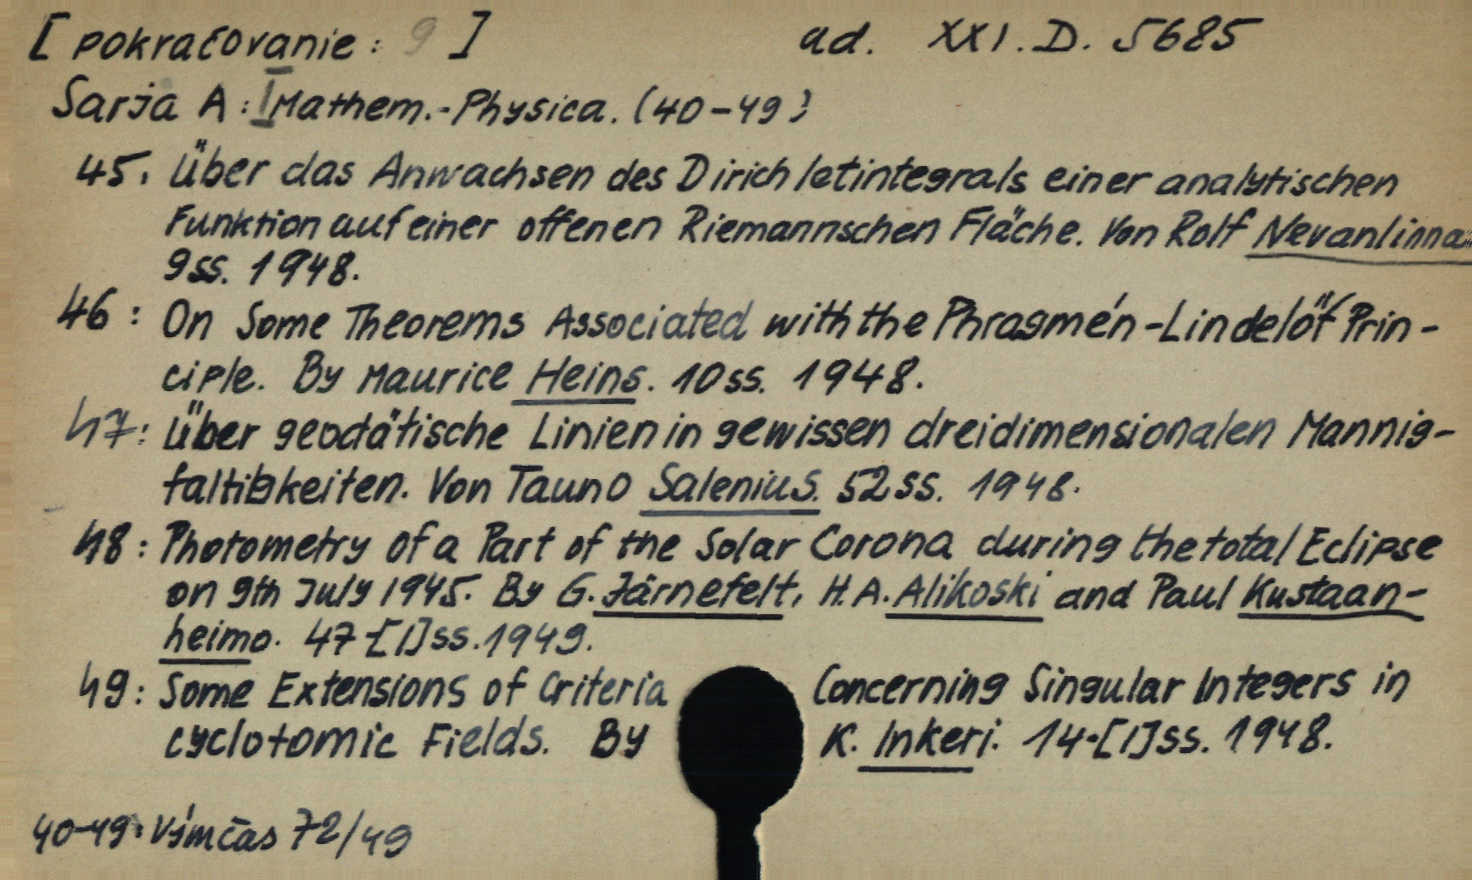 [ pokračovanie : 9 ] ad. XXI. D. 5685
Sarja A : I Mathem.-Physica. (40-49)
45. Über das Anwachsen des Dirichletintegrals einer analytischen
Funktion auf einer offenen Riemannschen Fläche. Von Rolf Nevanlinna
9 ss. 1948.
46 : On Some Theorems Associated with the Phragmén-Lindelöf Prin-
ciple. By Maurice Heins. 10 ss. 1948.
47 : Über geodätische Linien in gewissen dreidimensionalen Mannig-
faltibkeiten. Von Tauno Salenius. 52 ss. 1948.
48 : Photometry of a Part of the Solar Corona during the total Eclipse
on 9th July 1945. By G. Järnefelt, H. A. Alikoski and Paul Kustaan-
heimo. 47-[1] ss. 1949.
49 : Some Extensions of Criteria Concerning Singular Integers in
cyclotomic Fields. By K. Inkeri. 14-[1] ss. 1948.
40-49: Výmčas 72/49